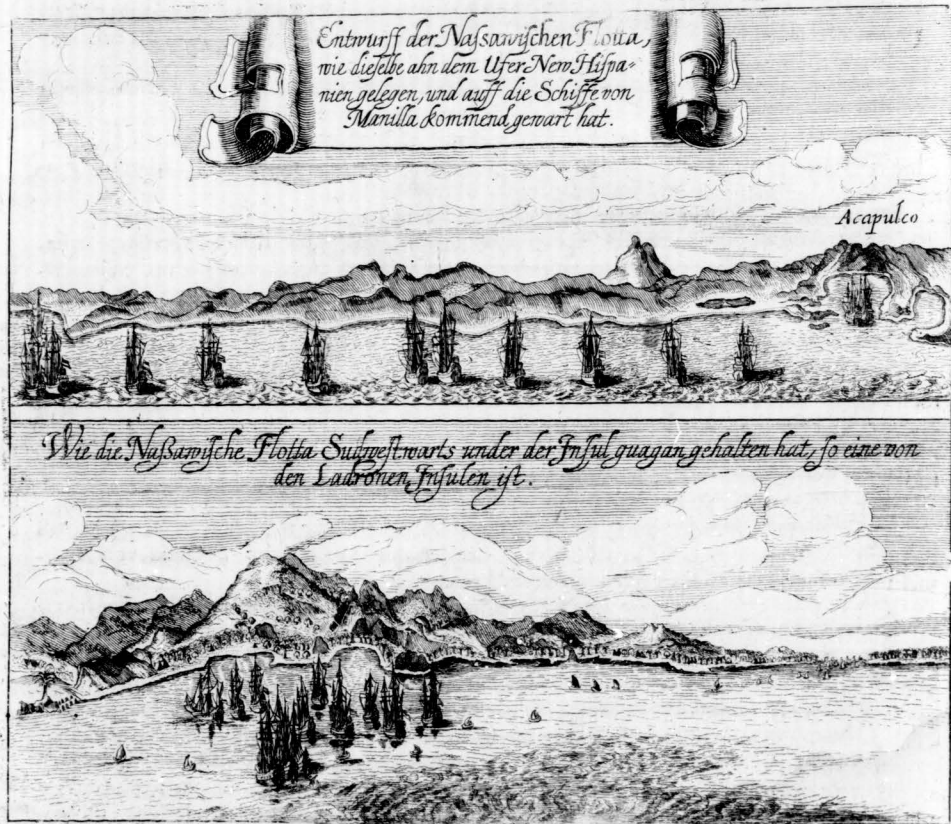 Entwurff der Naſsawiſchen Flotta,
wie dieſelbe ahn dem Ufer New Hiſpa⸗
nien gelegen, und auff die Schiffe von
Manilla kommend gewart hat.
Acapulco
Wie die Naßawiſche Flotta Sudweſtwarts under der Inſul guagan gehalten hat, ſo eine von
den Ladronen Inſulen iſt.